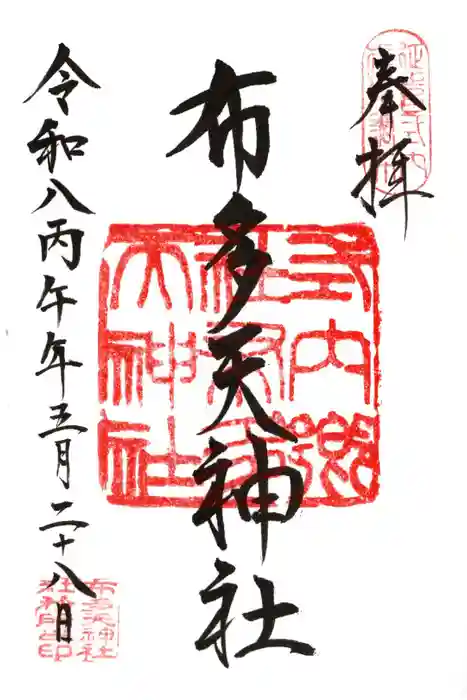 奉拝
布多天神社
令和八丙午年五月二十八日
式内郷社布多天神社
布多天神社
社務所印